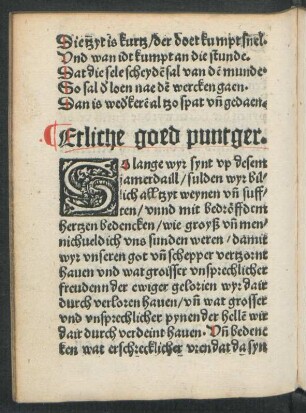 Die tzyt is kurtz/der doet kumpt snel.
Vnd wan idt kumpt an die stunde.
Dat die sele scheydē sal van dē munde
So sal d' loen nae dē wercken gaen.
Dan is wedkerē al tzo spat vn̄ gedaen.
Etliche goed puntger.
So lange wyr synt vp desem
jamerdaill/sulden wyr bil⸗
lich all tzyt weynen vn̄ suff⸗
ren/vnnd mit bedröfftem
hertzen bedencken/wie groyß vn̄ men⸗
nichueldich vns sunden weren/damit
wyr vnseren got vn̄ schepper vertzornt
hauen vnd wat groisser vnsprechlicher
freudenn der ewiger glorien wyr dair
durch verloren hauen/vn̄ wat grosser
vnd vnsprechlicher pynen der hellē wir
dair durch verdeint hauen. Vn̄ beden⸗
ken wat erschrecklicher vren dat da syn